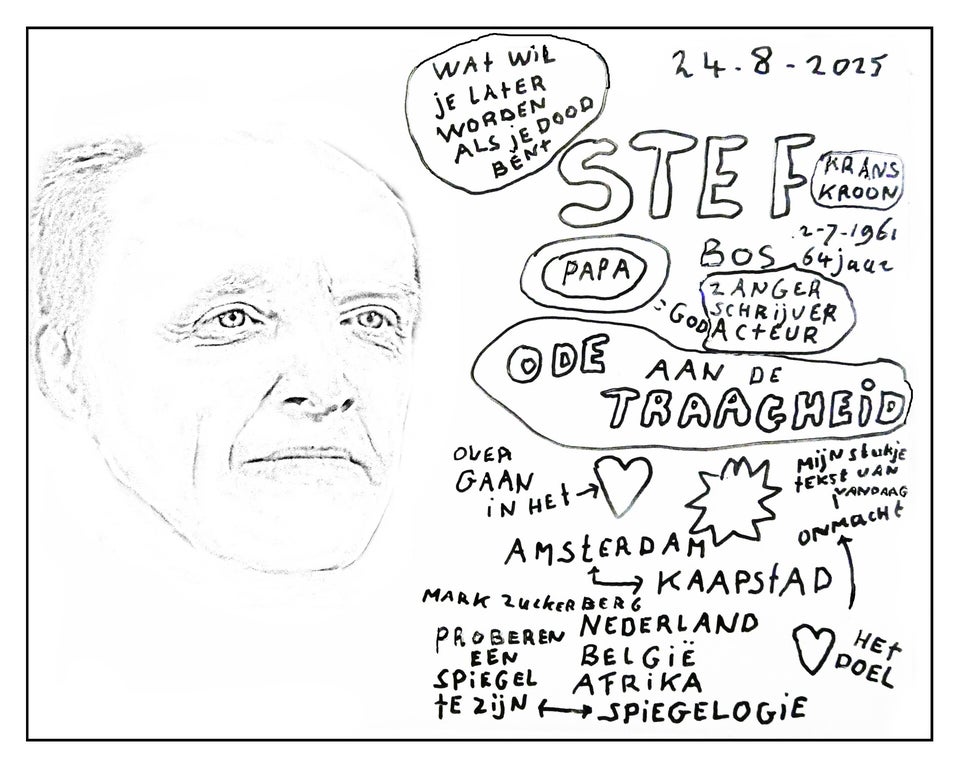 WAT WIL
JE LATER
WORDEN
ALS JE DOOD
BENT
24.8-2025
STEF
KRANS
KROON
2-7-1961
BOS 64 jaar
PAPA
ZANGER
SCHRIJVER
ACTEUR
GOD
ODE AAN DE
TRAAGHEID
OVER
GAAN
IN HET
MIJN stukje
tEKSt VAN
VANDAAG
ONMACHt
AMStERDAM
KAAPStAD
MARK ZUCKERBERG
PROBEREN
EEN
SPIEGEL
tE ZIJN
NEDERLAND
BELGIË
AFRIKA
SPIEGELOGIE
HEt
DOEL